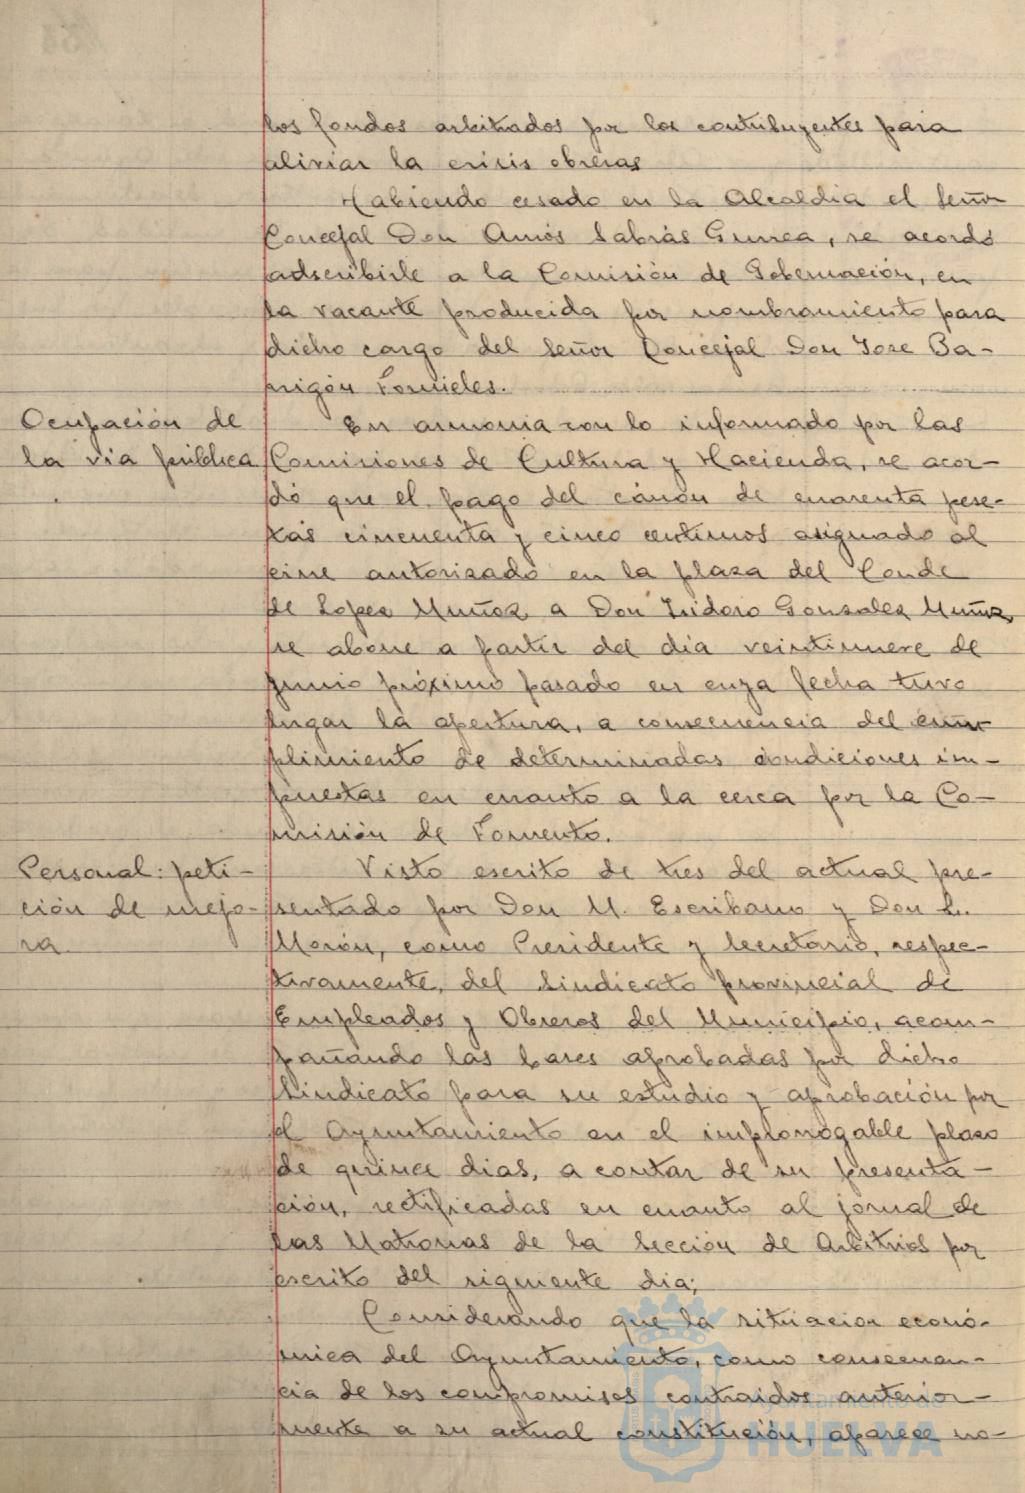 los fondos arbitrados por los contribuyentes para
aliviar la crisis obreras
Habiendo cesado en la Alcaldia el Señor
Concejal Don Amós Sabrás Gurrea, se acordó
adscribirle a la Comisión de Gobernación, en
la vacante producida por nombramiento para
dicho cargo del Señor Concejal Don Jose Ba-
rrigón Fornieles.
Ocupación de
la via pública
En armonia con lo informado por las
Comisiones de Cultura y Hacienda, se acor-
dó que el pago del cánon de cuarenta pese-
tas cincuenta y cinco centimos asignado al
cine autorizado en la plaza del Conde
de Lopez Muñoz a Don Isidoro Gonzalez Muñoz
se abone a partir del dia veintinueve de
junio próximo pasado en cuya fecha tuvo
lugar la apertura, a consecuencia del cum-
plimiento de determinadas condiciones im-
puestas en cuanto a la cerca por la Co-
misión de Fomento.
Personal: peti-
ción de mejo-
ra.
Visto escrito de tres del actual pre-
sentado por Don M. Escribano y Don L.
Morón, como Presidente y Secretario, respec-
tivamente, del Sindicato provincial de
Empleados y Obreros del Municipio, acom-
pañando las bases aprobadas por dicho
Sindicato para su estudio y aprobación por
el Ayuntamiento en el improrrogable plazo
de quince dias, a contar de su presenta-
ción, rectificadas en cuanto al jornal de
las Matronas de la Sección de Arbitrios por
escrito del siguiente dia;
Considerando que la situacion econó-
mica del Ayuntamiento, como consecuen-
cia de los compromisos contraidos anterior-
mente a su actual constitución, aparece no-
Ayuntamiento de
HUELVA